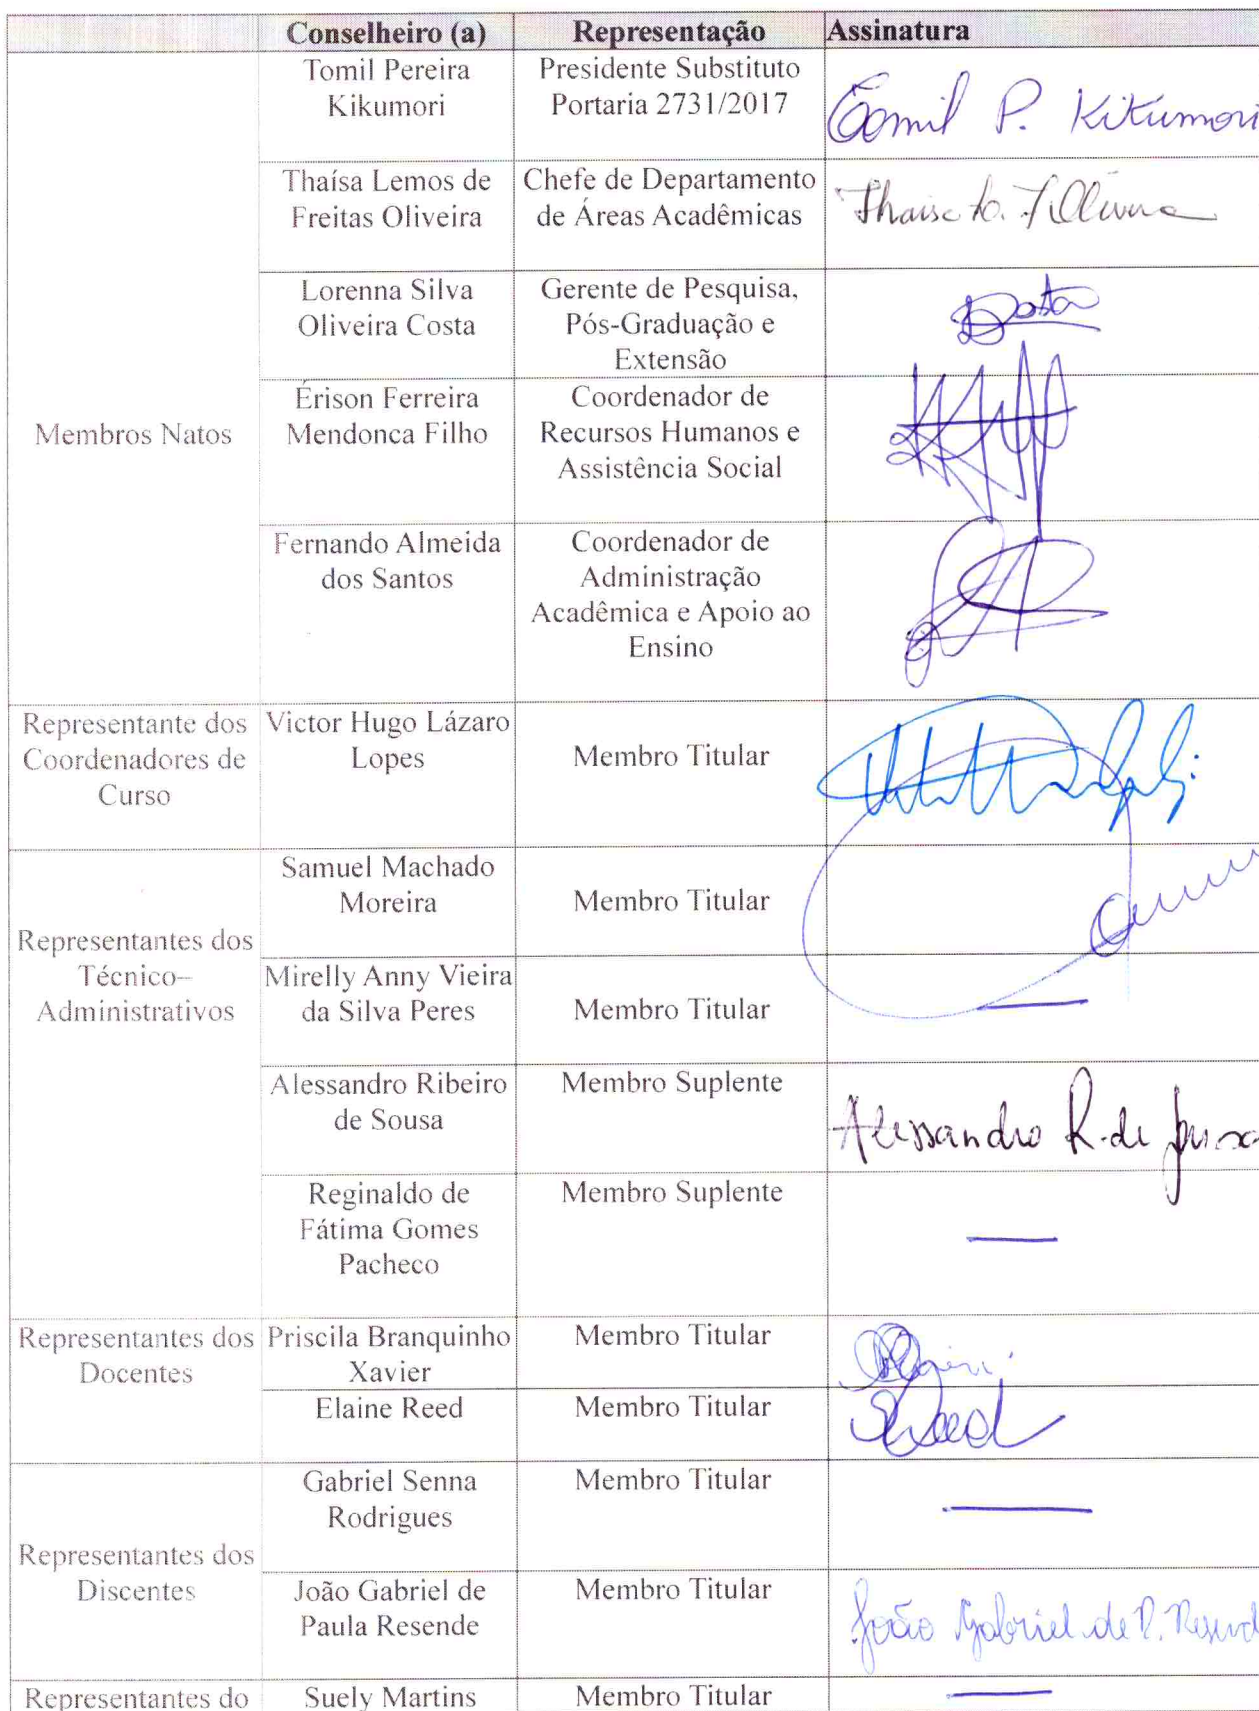 Conselheiro (a) Representação Assinatura
Tomil Pereira
Kikumori
Presidente Substituto
Portaria 2731/2017
Tomil P. Kikumori
Thaísa Lemos de
Freitas Oliveira
Chefe de Departamento
de Áreas Acadêmicas
Lorenna Silva
Oliveira Costa
Gerente de Pesquisa,
Pós-Graduação e
Extensão
Costa
Membros Natos
Érison Ferreira
Mendonca Filho
Coordenador de
Recursos Humanos e
Assistência Social
Fernando Almeida
dos Santos
Coordenador de
Administração
Acadêmica e Apoio ao
Ensino
Representante dos
Coordenadores de
Curso
Victor Hugo Lázaro
Lopes
Membro Titular
Representantes dos
Técnico–
Administrativos
Samuel Machado
Moreira
Membro Titular
Mirelly Anny Vieira
da Silva Peres
Membro Titular
Alessandro Ribeiro
de Sousa
Membro Suplente
Alessandro R. de Sousa
Reginaldo de
Fátima Gomes
Pacheco
Membro Suplente
Representantes dos
Docentes
Priscila Branquinho
Xavier
Membro Titular
Elaine Reed
Membro Titular
EReed
Representantes dos
Discentes
Gabriel Senna
Rodrigues
Membro Titular
João Gabriel de
Paula Resende
Membro Titular
João Gabriel de P. Resend
Representantes do
Suely Martins
Membro Titular